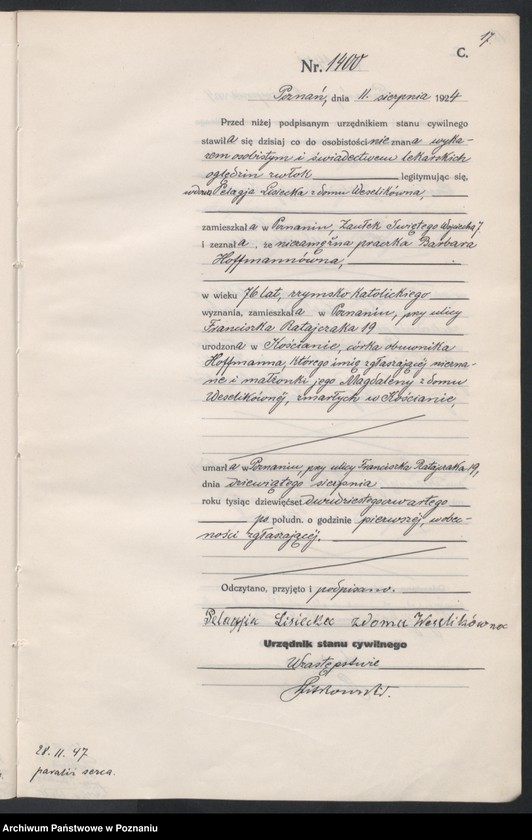 17
C.
Nr. 1400
Poznań, dnia 11. sierpnia 1924
Przed niżej podpisanym urzędnikiem stanu cywilnego
stawiła się dzisiaj co do osobistości nie znana wyka-
zem osobistym i świadectwem lekarskich
oględzin zwłok legitymując się,
wdowa Pelagja Lisiecka z domu Weselikówna,
zamieszkała w Poznaniu, Zaułek Świętego Wojciecha 7
i zeznała, że niezamężna praczka Barbara
Hoffmannówna,
w wieku 76 lat, rzymsko katolickiego
wyznania, zamieszkała w Poznaniu, przy ulicy
Franciszka Ratajczaka 19
urodzona w Kościanie, córka obuwnika
Hoffmanna, którego imię zgłaszającej niezna-
ne i małżonki jego Magdaleny z domu
Weselikównej, zmarłych w Kościanie,
umarła w Poznaniu, przy ulicy Franciszka Ratajczaka 19,
dnia dziewiątego sierpnia
roku tysiąc dziewięćset dwudziestegoczwartego
po połudn. o godzinie pierwszej, w obec-
ności zgłaszającej.
Odczytano, przyjęto i podpisano.
Pelagja Lisiecka z domu Weselikówna
Urzędnik stanu cywilnego
W zastępstwie
28. 11. 47
paraliż serca.
Archiwum Państwowe w Poznaniu